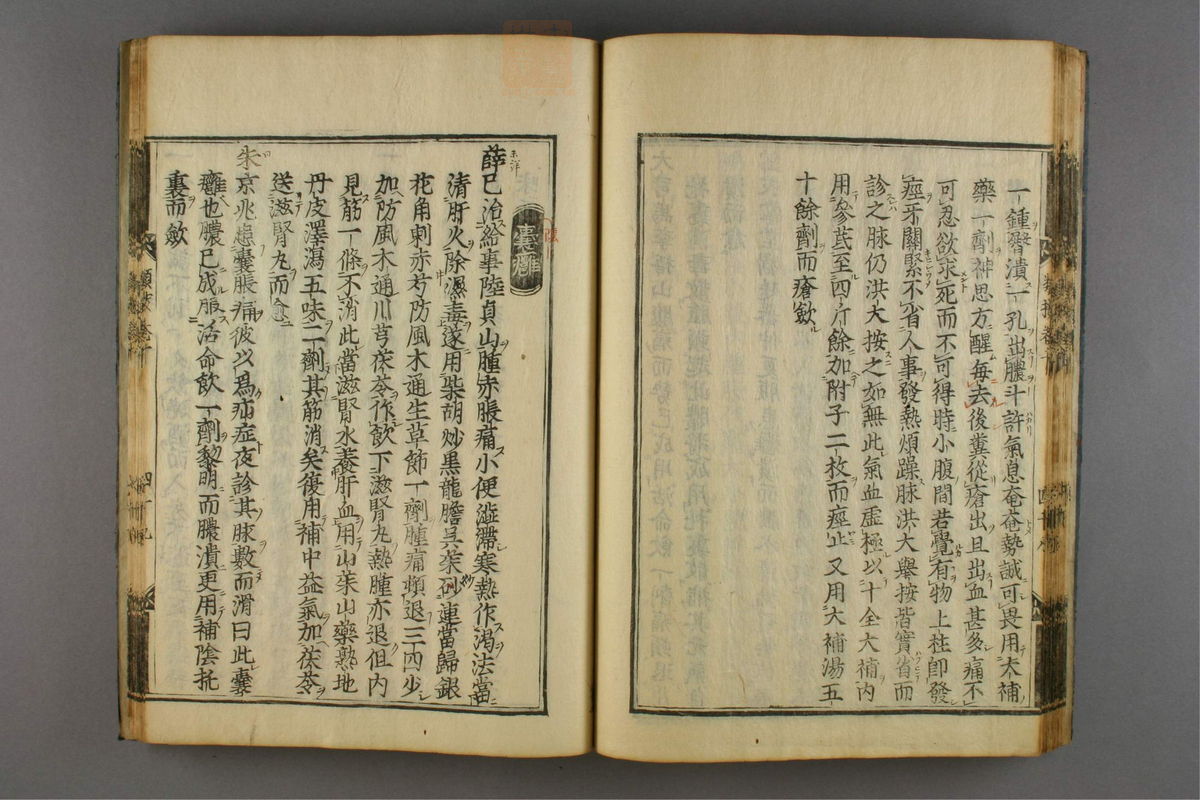 一鍾臀潰一孔出膿斗許氣息奄奄勢誠可畏用大補
藥一劑神思方醒每去後糞從瘡出且出血甚多痛不
可忍欲求死而不可得時小腹間若覺有物上柱卽發
痙牙關緊不省人事發熱煩躁脉洪大舉按皆實省而
診之脉仍洪大按之如無此氣血虛極以十全大補內
用參芪至四斤餘加附子二枚而痙止又用大補湯五
十餘劑而瘡歛
囊癰
薛已治給事陸貞山腫赤脹痛小便澁滯寒熱作渴法當
清肝火除濕毒遂用柴胡炒黑龍膽吳茱砂連當歸銀
花角刺赤芍防風木通生草節一劑腫痛頓退三四少
加防風木通川芎茯苓作飲下滋腎丸熱腫亦退但內
見筋一條不消此當滋腎水養肝血用山茱山藥熟地
丹皮澤瀉五味二劑其筋消矣復用補中益氣加茯苓
送滋腎丸而愈
朱京兆患囊脹痛彼以爲疝症夜診其脉數而滑曰此囊
癰也膿已成服活命飲一劑黎明而膿潰更用補陰托
裏而歛